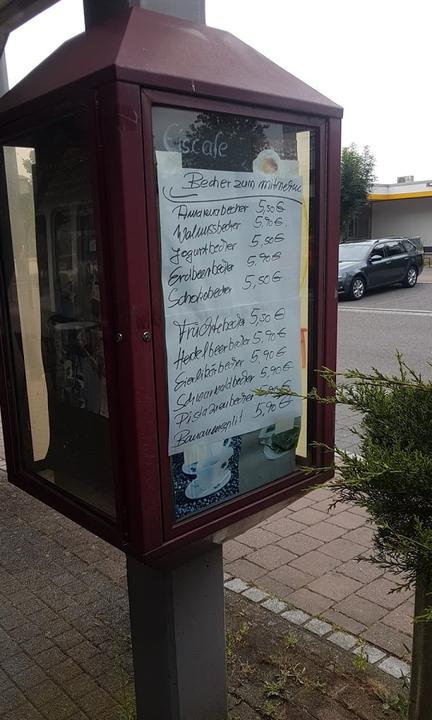 Eiscafe
Becher zum mitnehmen
Amarenabecher 5,50€
Walnussbecher 5,90€.
Jogurtbecher 5,50€
Erdbeerbecher 5,90€
Schokobecher 5,50€
Früchtebecher 5,50€
Heidelbeerbecher 5,90€
Eierlikörbecher 5,90€
Schwarzwaldbecher 5,90€
Pistazienbecher 5,90€
Bananensplit 5,90€